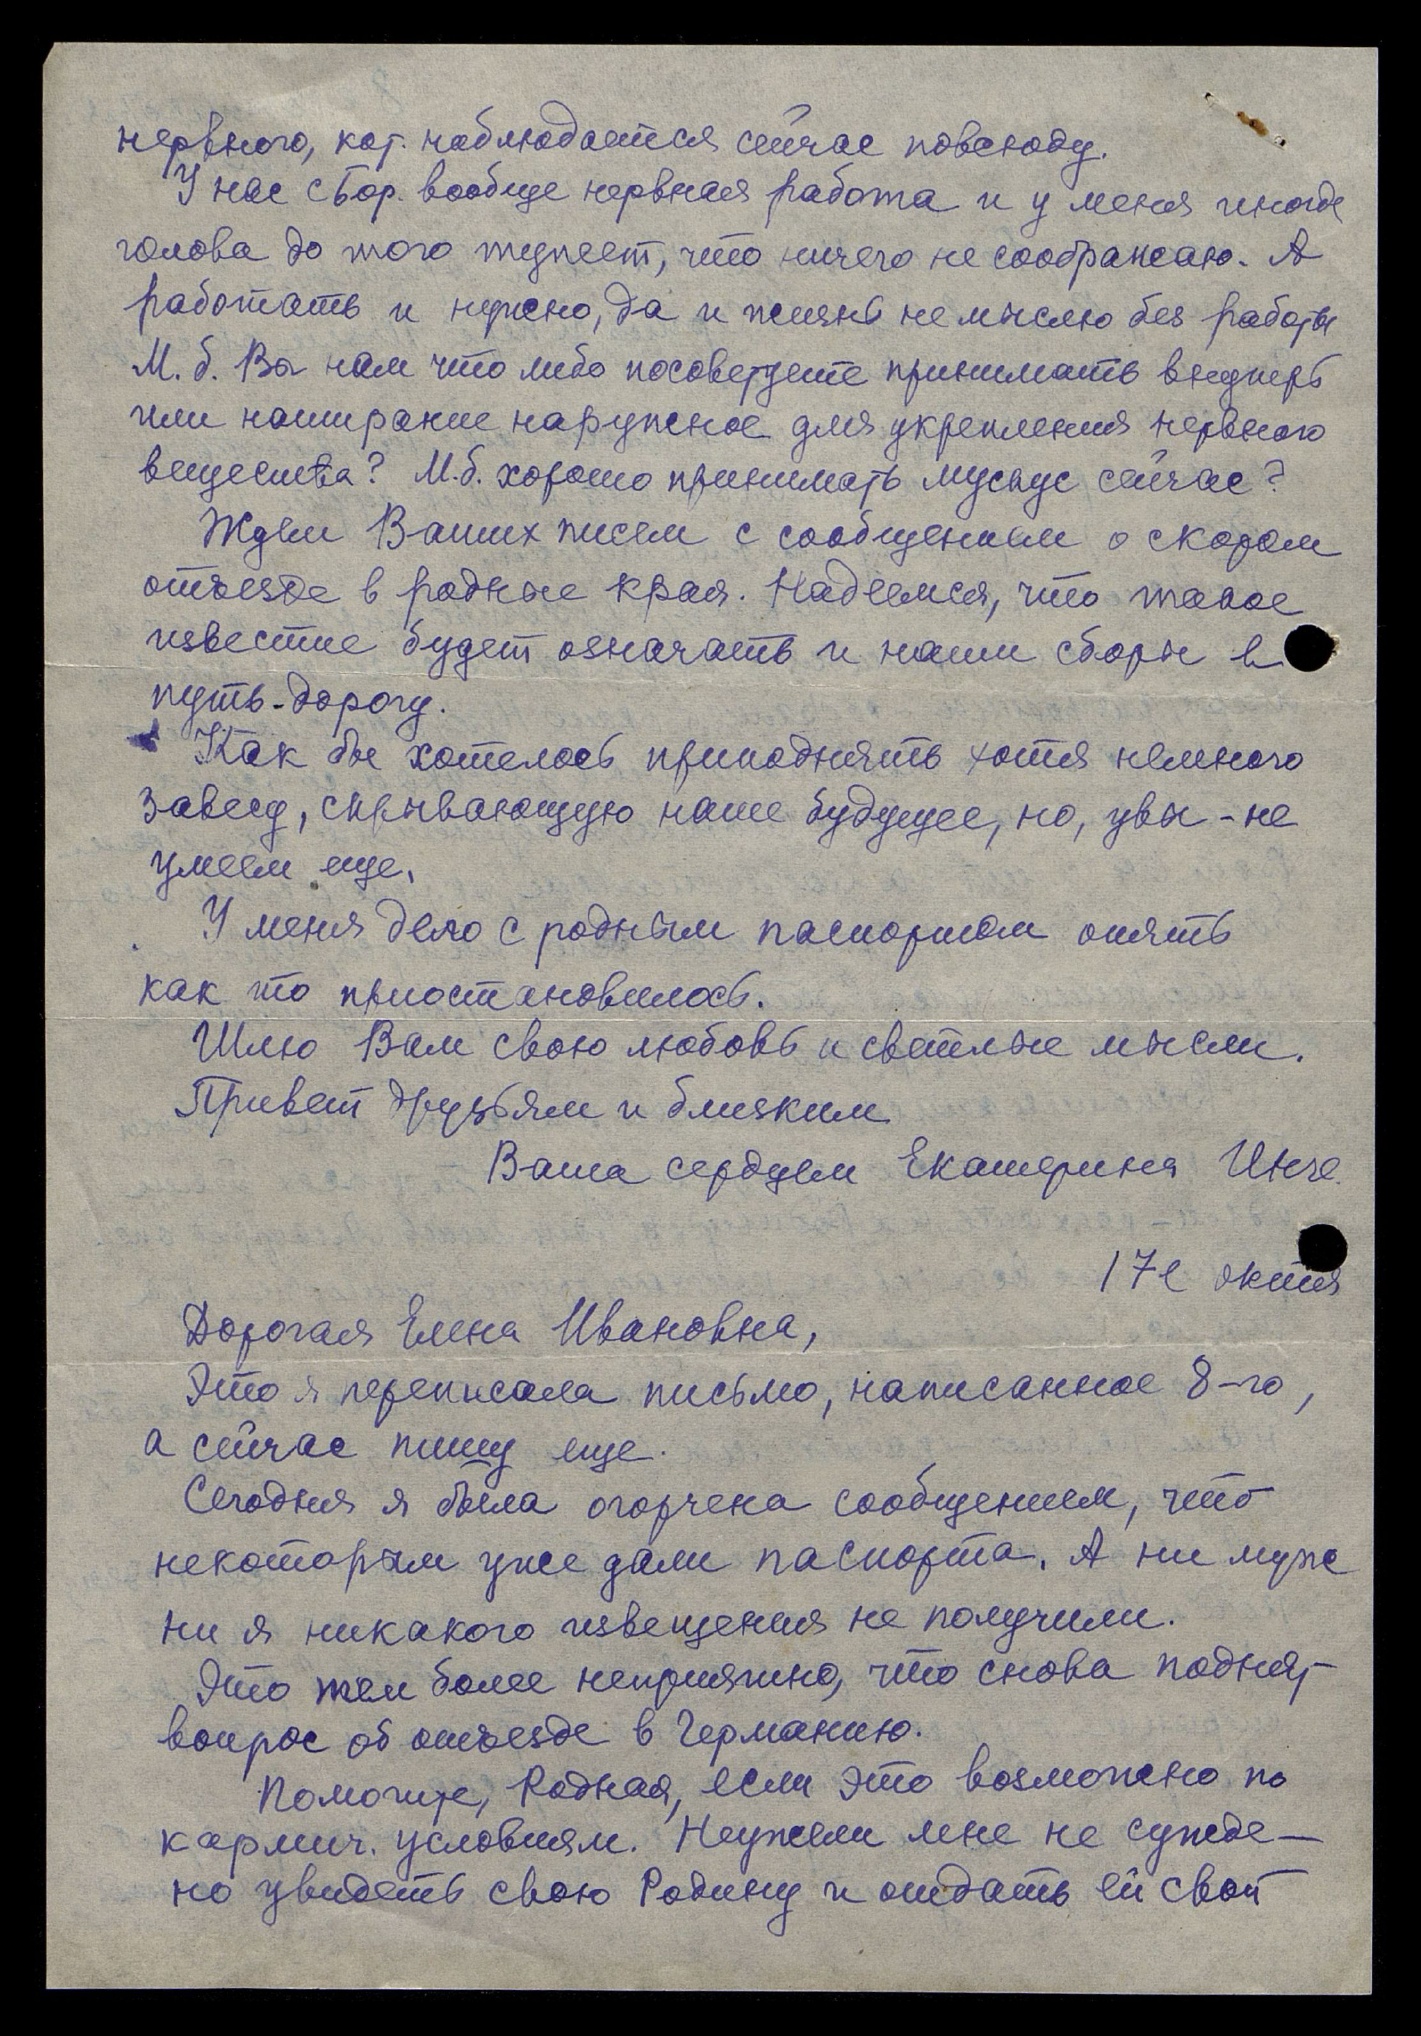 нервного, кот. наблюдается сейчас повсюду.
У нас с Бор. вообще нервная работа и у меня иногда
голова до того тупеет, что ничего не соображаю. А
работать и нужно, да и жизнь не мыслю без работы
М. б. Вы нам что либо посоветуете принимать внутрь
или натирание наружное для укрепления нервного
вещества? М.б. хорошо принимать мускус сейчас?
Ждем Ваших писем с сообщением о скором
отъезде в родные края. Надеемся, что такое
известие будет означать и наши сборы в
путь-дорогу.
Как бы хотелось приподнять хотя немного
завесу, скрывающую наше будущее, но, увы - не
умеем еще.
У меня дело с родным паспортом опять
как то приостановилось.
Шлю Вам свою любовь и светлые мысли.
Привет друзьям и близким
Ваша сердцем Екатерина Инге
17е октя
Дорогая Елена Ивановна,
Это я переписала письмо, написанное 8-го,
а сейчас пишу еще.
Сегодня я была огорчена сообщением, что
некоторым уже дали паспорта. А ни муж
ни я никакого извещения не получили.
Это тем более неприятно, что снова поднят
вопрос об отъезде в Германию.
Помогите, Родная, если это возможно по
кармич. условиям. Неужели мне не сужде-
но увидеть свою Родину и отдать ей свой